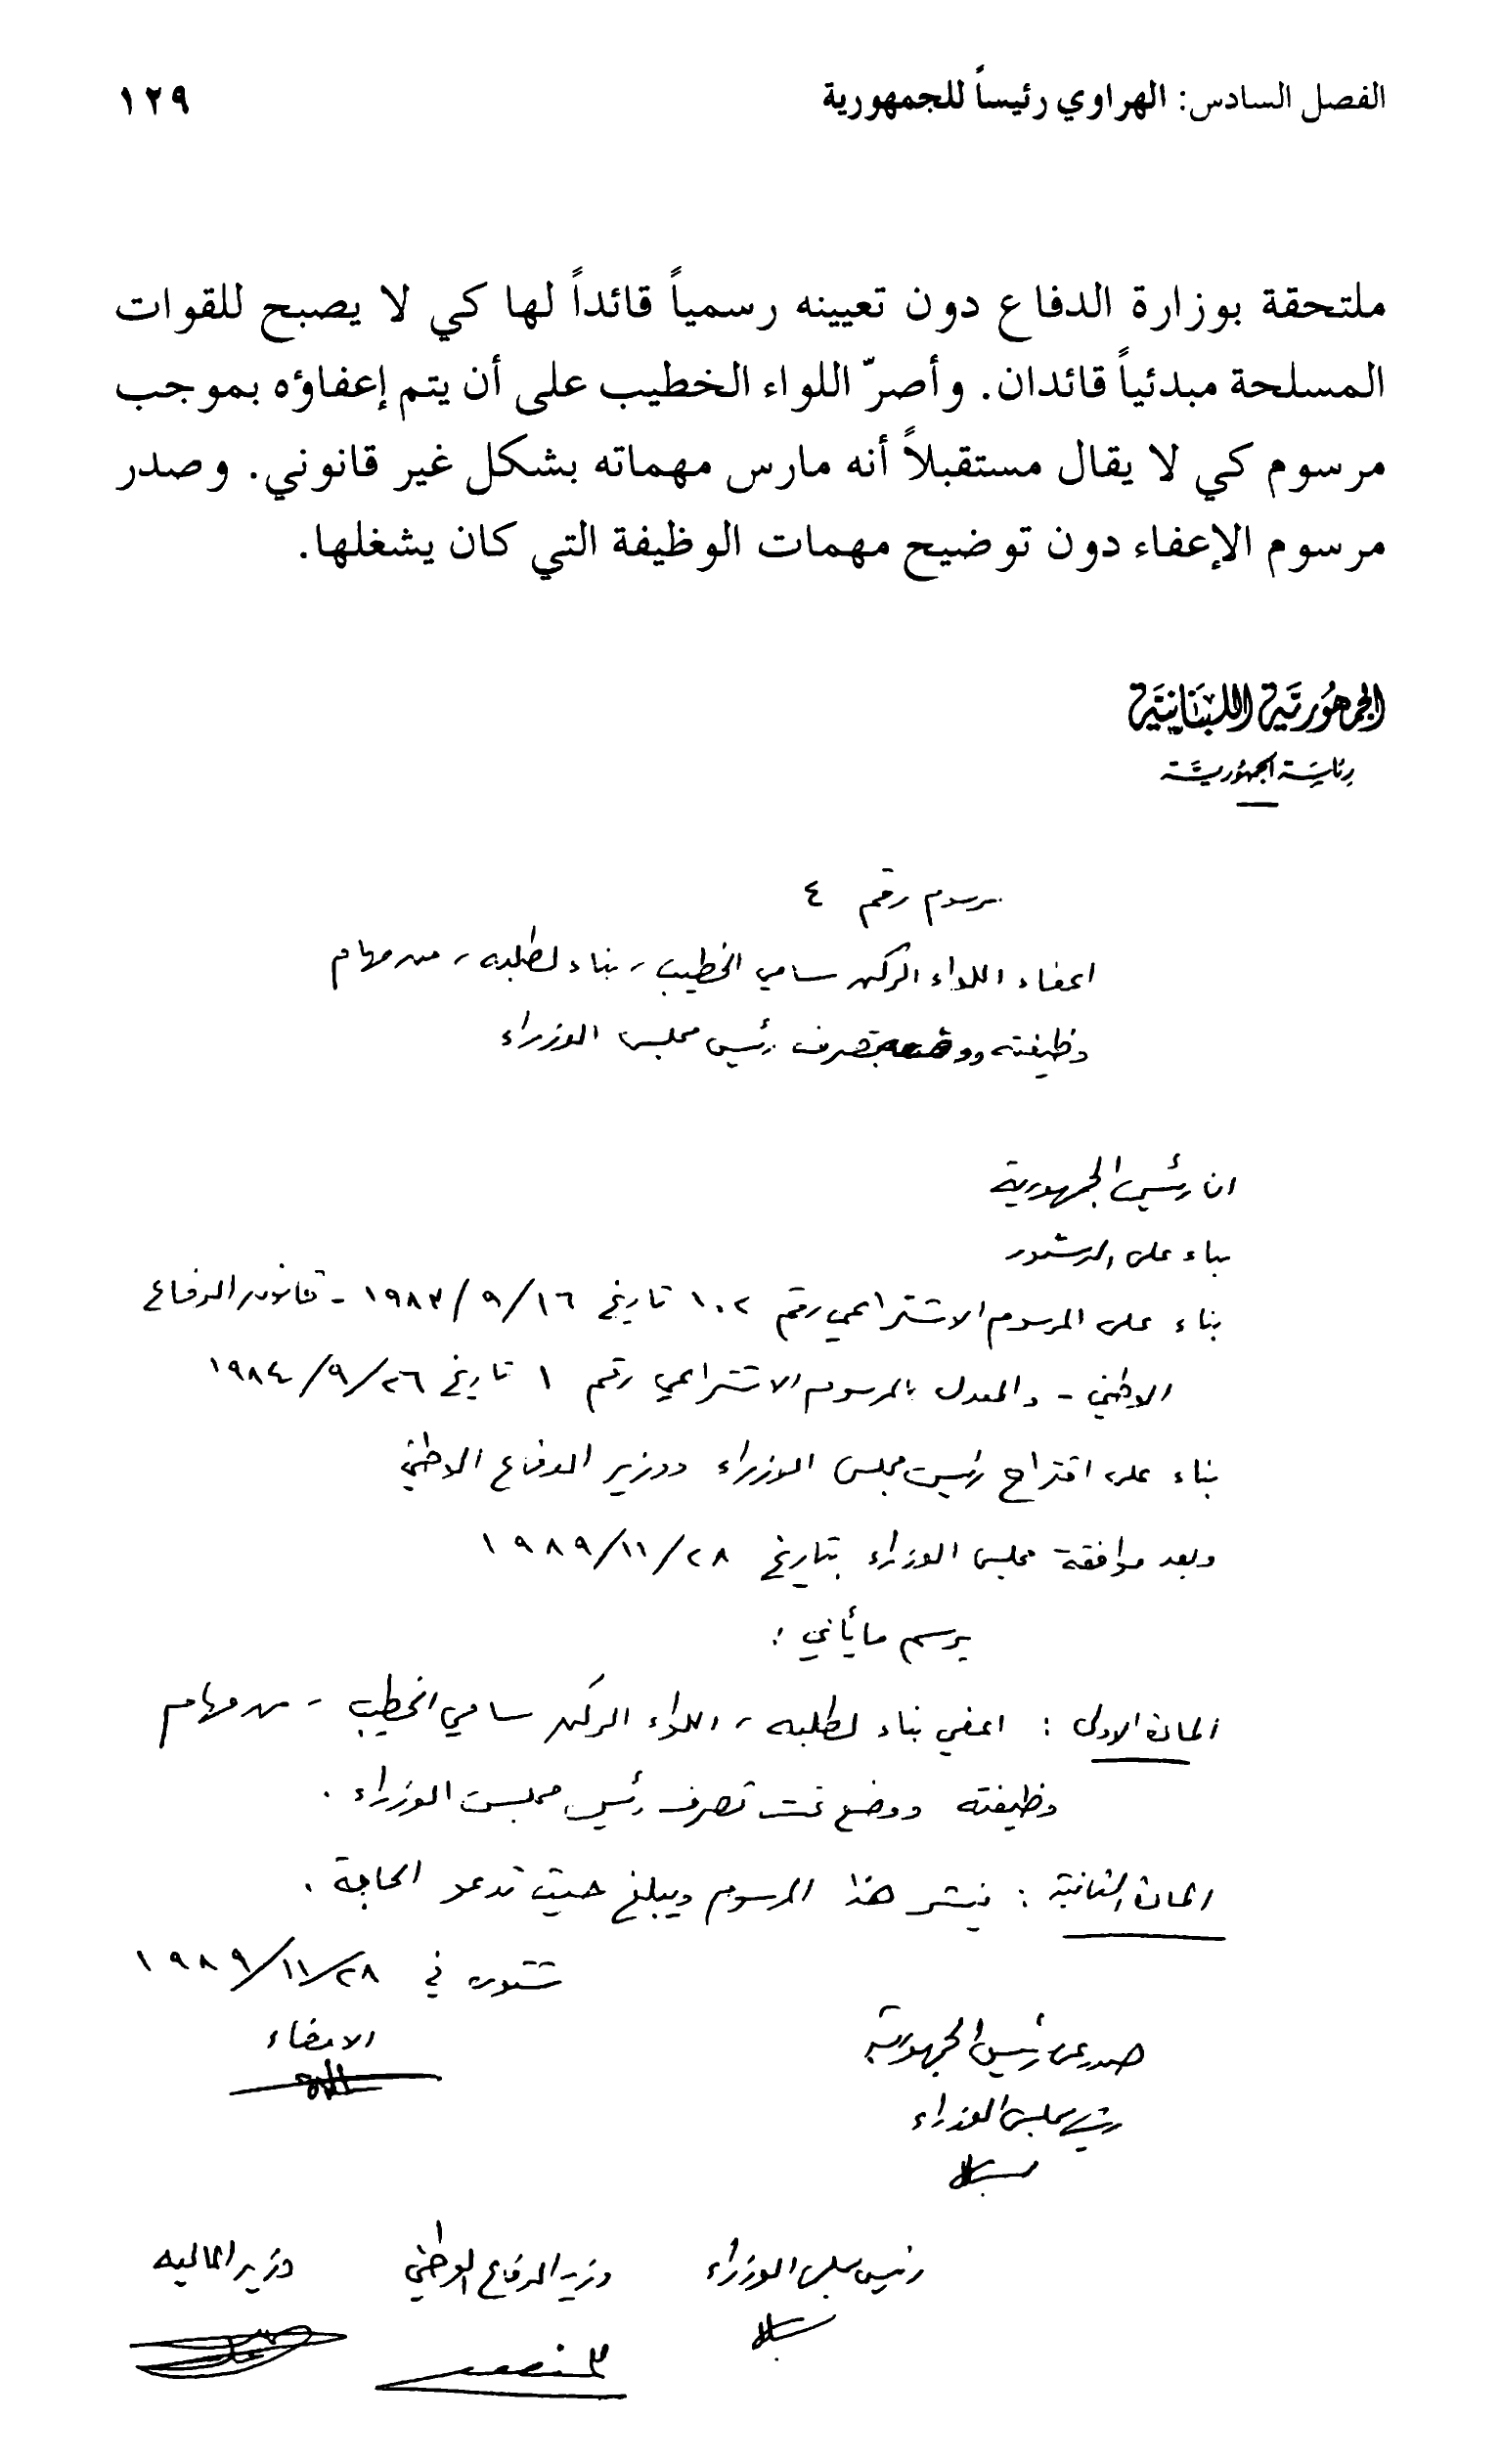 الفصل السادس: الهراوي رئيساً للجمهورية ١٢٩
ملتحقة بوزارة الدفاع دون تعيينه رسمياً قائداً لها كي لا يصبح للقوات
المسلحة مبدئياً قائدان. وأصرّ اللواء الخطيب على أن يتم إعفاؤه بموجب
مرسوم كي لا يقال مستقبلاً أنه مارس مهماته بشكل غير قانوني. وصدر
مرسوم الإعفاء دون توضيح مهمات الوظيفة التي كان يشغلها.
الجمهورية اللبنانية
رئاسة الجمهورية
مرسوم رقم ٤
اعفاء اللواء الركن سامي الخطيب، بناء لطلبه، من مهام
وظيفته ووضعه بتصرف رئيس مجلس الوزراء
ان رئيس الجمهورية
بناء على الدستور
بناء على المرسوم الاشتراعي رقم ١٠٢ تاريخ ١٩٨٣/٩/١٦ - قانون الدفاع
الوطني - والمعدل بالمرسوم الاشتراعي رقم ١ تاريخ ١٩٨٤/٩/٢٦
بناء على اقتراح رئيس مجلس الوزراء ووزير الدفاع الوطني
وبعد موافقة مجلس الوزراء بتاريخ ١٩٨٩/١١/٢٨
يرسم ما يأتي:
المادة الاولى: اعفي بناء لطلبه، اللواء الركن سامي الخطيب - من مهام
وظيفته ووضع تحت تصرف رئيس مجلس الوزراء.
المادة الثانية: ينشر هذا المرسوم ويبلغ حيث تدعو الحاجة.
شتوره في ١٩٨٩/١١/٢٨
الامضاء
صدر عن رئيس الجمهورية
رئيس مجلس الوزراء
رئيس مجلس الوزراء وزير الدفاع الوطني وزير المالية